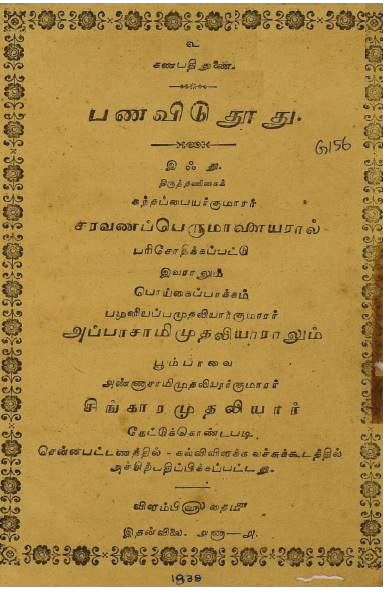 உ
கணபதி துணை.
பணவிடுதூது.
G156
இஃது
திருத்தணிகைக்
கந்தப்பையர்குமாரர்
சரவணப்பெருமாளையரால்
பரிசோதிக்கப்பட்டு
இவராலும்
பொய்கைப்பாக்கம்
பழனியப்பமுதலியார்குமாரர்
அப்பாசாமிமுதலியாராலும்
பூம்பாவை
அண்ணாசாமிமுதலியார்குமாரர்
சிங்காரமுதலியார்
கேட்டுக்கொண்டபடி
சென்னபட்டணத்தில் - கல்விவிளக்க வச்சுக்கூடத்தில்
அச்சிற்பதிப்பிக்கப்பட்டது.
விளம்பி௵ தை௴
இதன்விலை. அணா—அ.
1938